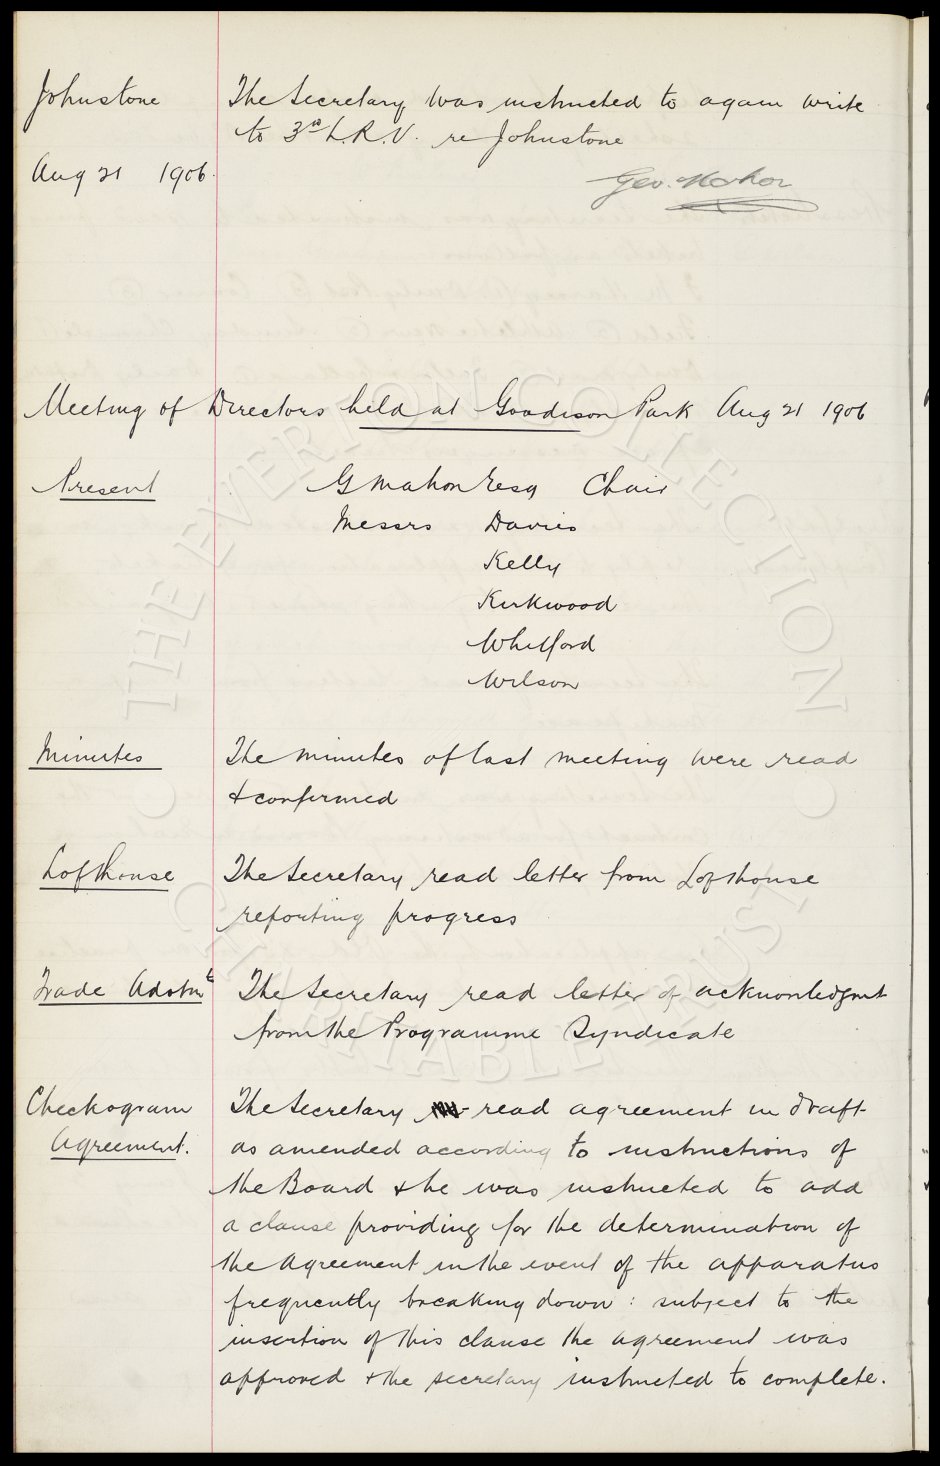 Johnstone The Secretary was instructed to again write
to 3rd L.R.V. re Johnstone
Aug 21 1906.
Geo. Mahon
Meeting of Directors held at Goodison Park Aug 21 1906
Present G Mahon Esq Chair
Messrs Davies
Kelly
Kirkwood
Whitford
Wilson
Minutes The minutes of last meeting were read
& confirmed
Lofthouse The Secretary read letter from Lofthouse
reporting progress
Trade Advtmt The Secretary read letter of acknowledgmt
from the Programme Syndicate
Checkogram The Secretary read agreement in draft
Agreement. as amended according to instructions of
the Board & he was instructed to add
a clause providing for the determination of
the Agreement in the event of the apparatus
frequently breaking down: subject to the
insertion of this clause the agreement was
approved & the secretary instructed to complete.
THE EVERTON COLLECTION CHARITABLE TRUST